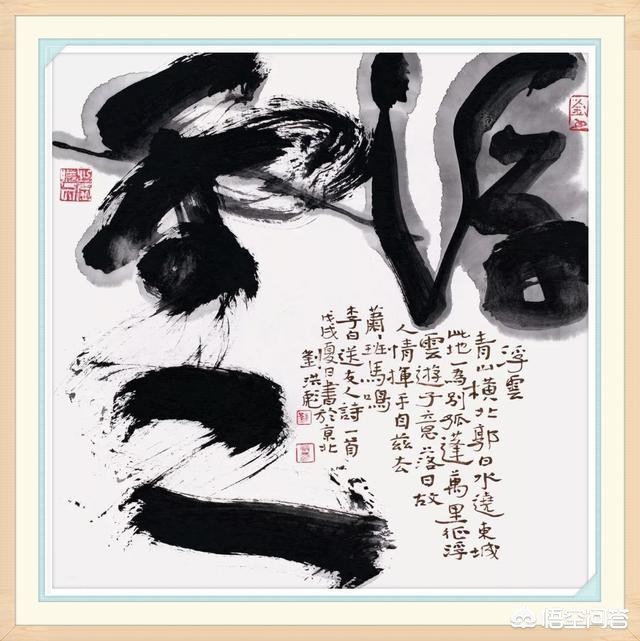 浮雲
浮雲
青山橫北郭白水遶東城
此地一為別孤蓬萬里征浮
雲遊子意落日故
人情揮手自茲去
蕭、班馬鳴
李白送友人詩一首
戊戌夏日書於京北
劉洪彪
悟空问答